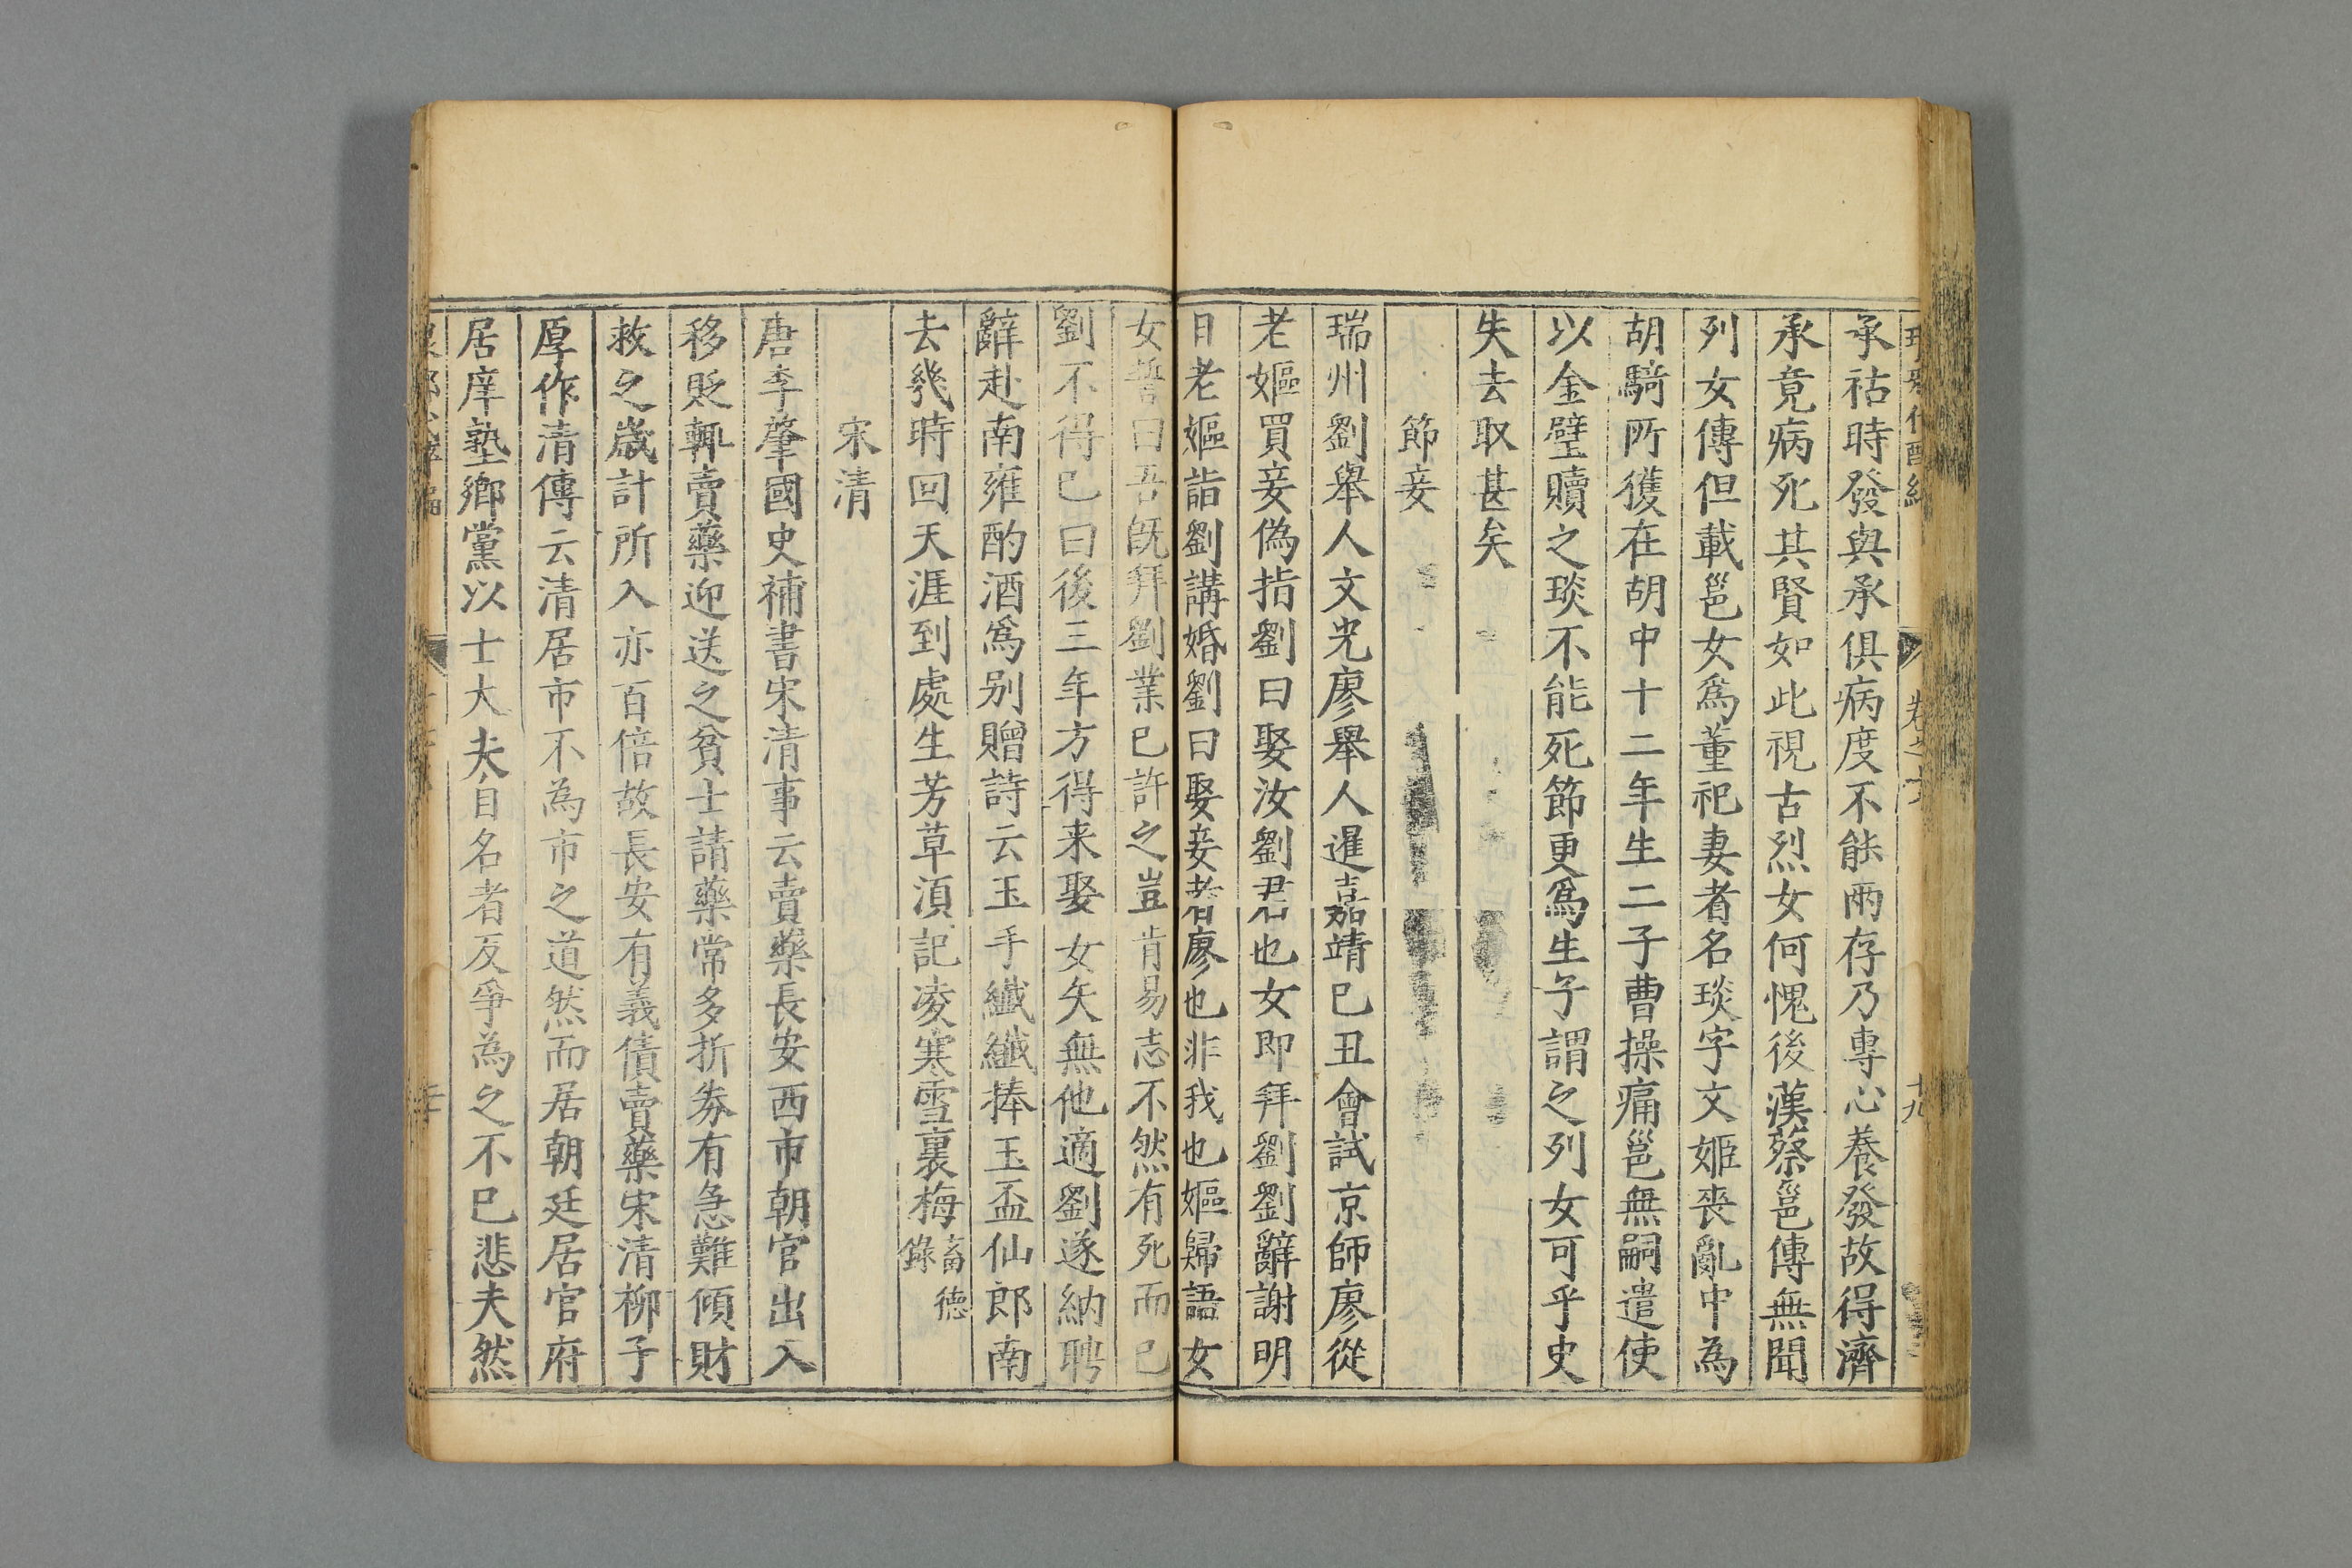 承祜時發與承俱病度不能兩存乃專心養發故得濟
承竟病死其賢如此視古烈女何愧後漢蔡邕傳無聞
列女傳但載邕女爲董祀妻者名琰字文姬喪亂中為
胡騎所獲在胡中十二年生二子曹操痛邕無嗣遣使
以金璧贖之琰不能死節更爲生子謂之列女可乎史
失去取甚矣
節妾
瑞州劉舉人文光廖舉人暹嘉靖巳丑會試京師廖從
老嫗買妾偽指劉曰娶汝劉君也女即拜劉劉辭謝明
日老嫗詣劉講婚劉曰娶妾者廖也非我也嫗歸語女
女誓曰吾旣拜劉業已許之豈肯易志不然有死而已
劉不得已曰後三年方得来娶女矢無他適劉遂納聘
辭赴南雍酌酒爲别贈詩云玉手纖纖捧玉盃仙郎南
去幾時回天涯到處生芳草須記凌寒雪裏梅畜德錄
宋清
唐李肇國史補書宋清事云賣藥長安西市朝官出入
移貶輒賣藥迎送之貧士請藥常多折劵有急難傾財
救之歲計所入亦百倍故長安有義債賣藥宋清柳子
厚作清傳云清居市不為市之道然而居朝廷居官府
居庠塾鄉黨以士大夫自名者反爭為之不巳悲夫然